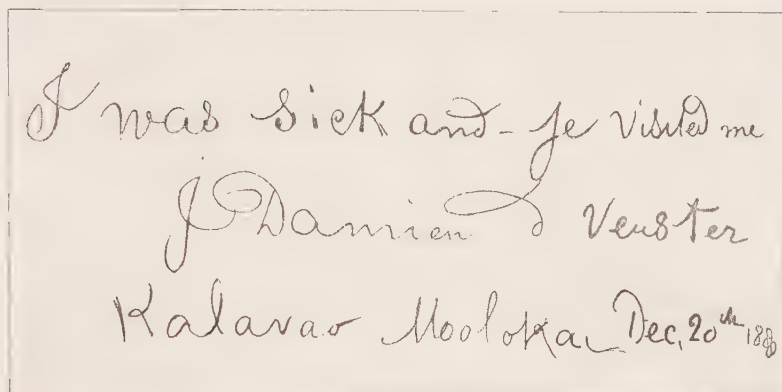 I was sick and - ye visited me
J Damien d Veuster
Kalavao Moolokai Dec, 20th 1888